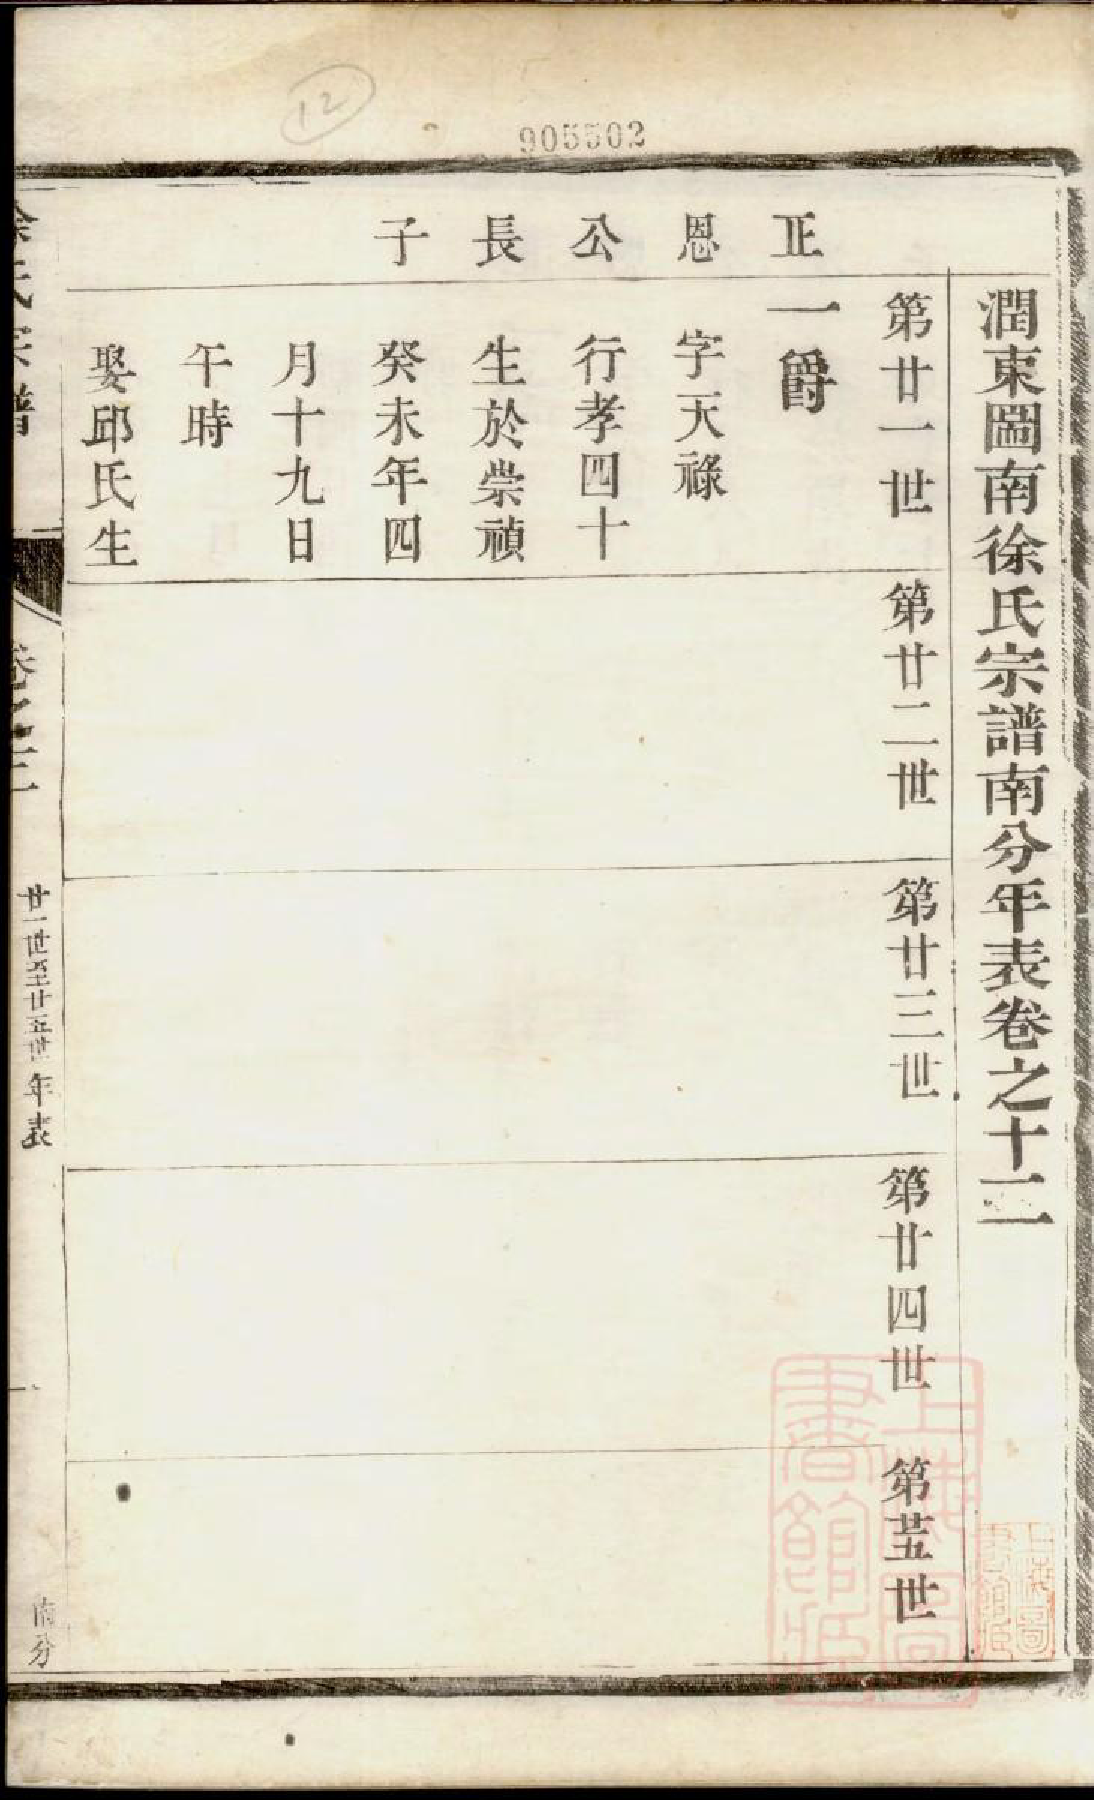 12
905502
潤東圌南徐氏宗譜南分年表卷之十二
第廿一世
第廿二世
第廿三世
第廿四世
第廿五世
正恩公長子
一爵
字天祿
行孝四十
生於崇禎
癸未年四
月十九日
午時
娶邱氏生
徐氏宗譜
卷之十二
廿一世至廿五世年表
南分
上海圖書館藏
上海圖書館藏